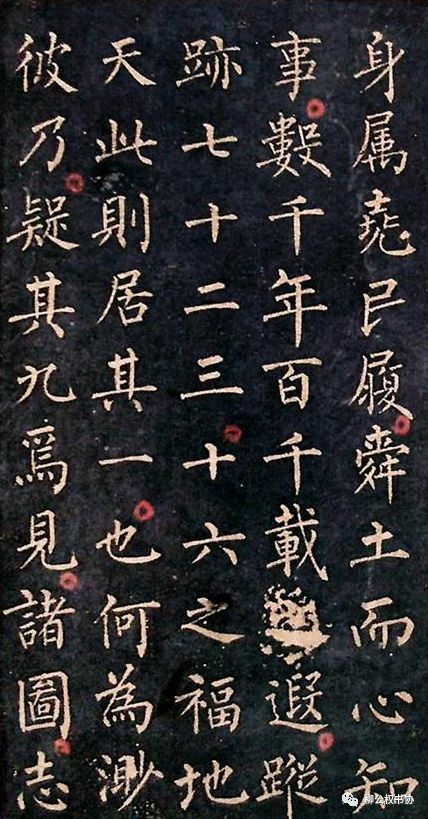 身属堯民履舜土而心知
事數千年百千載遐蹤
跡七十二三十六之福地
天此則居其一也何為渺
彼乃疑其九焉見諸圖志
柳公权书协